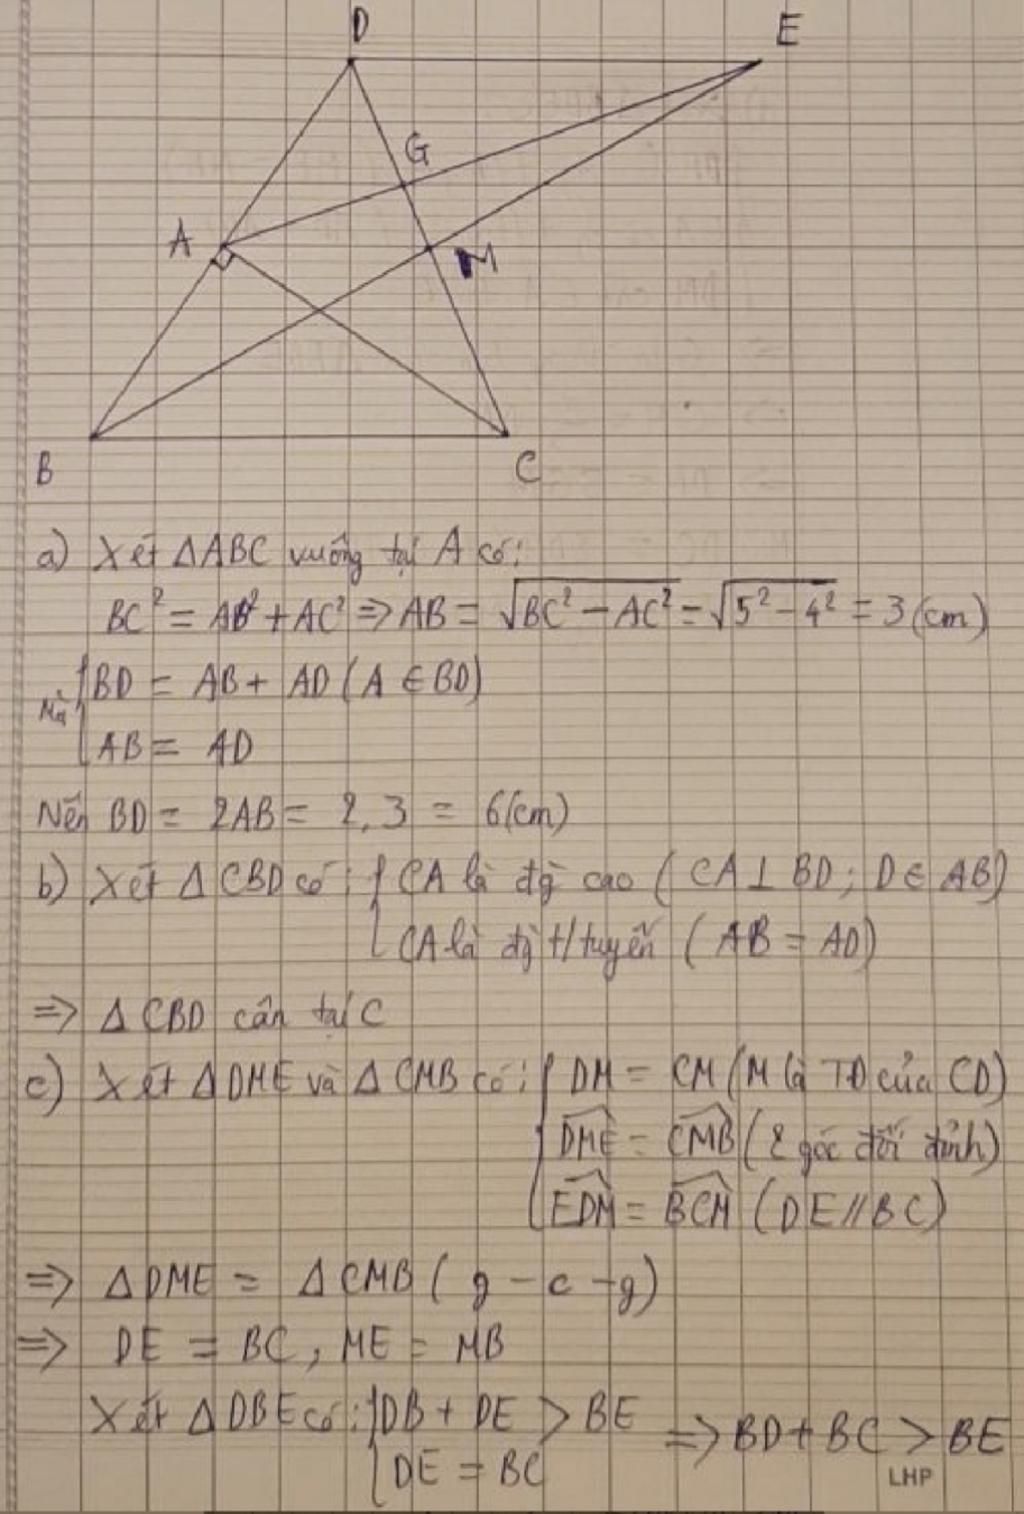 D
E
G
A
M
B
C
a) Xét ΔABC vuông tại A có:
BC² = AB² + AC² => AB = √(BC² - AC²) = √(5² - 4²) = 3 (cm)
Mà { BD = AB + AD (A ∈ BD)
AB = AD
Nên BD = 2AB = 2.3 = 6(cm)
b) Xét Δ CBD có: { CA là đg cao ( CA ⊥ BD; D ∈ AB)
CA là đg t/tuyến ( AB = AD)
=> Δ CBD cân tại C
c) Xét ΔDME và Δ CMB có: { DM = CM (M là TĐ của CD)
DME^ = CMB^ (2 góc đối đỉnh)
EDM^ = BCM^ (DE//BC)
=> Δ DME = Δ CMB ( g - c - g)
=> DE = BC, ME = MB
Xét ΔDBE có: { DB + DE > BE
DE = BC
=> BD + BC > BE
LHP